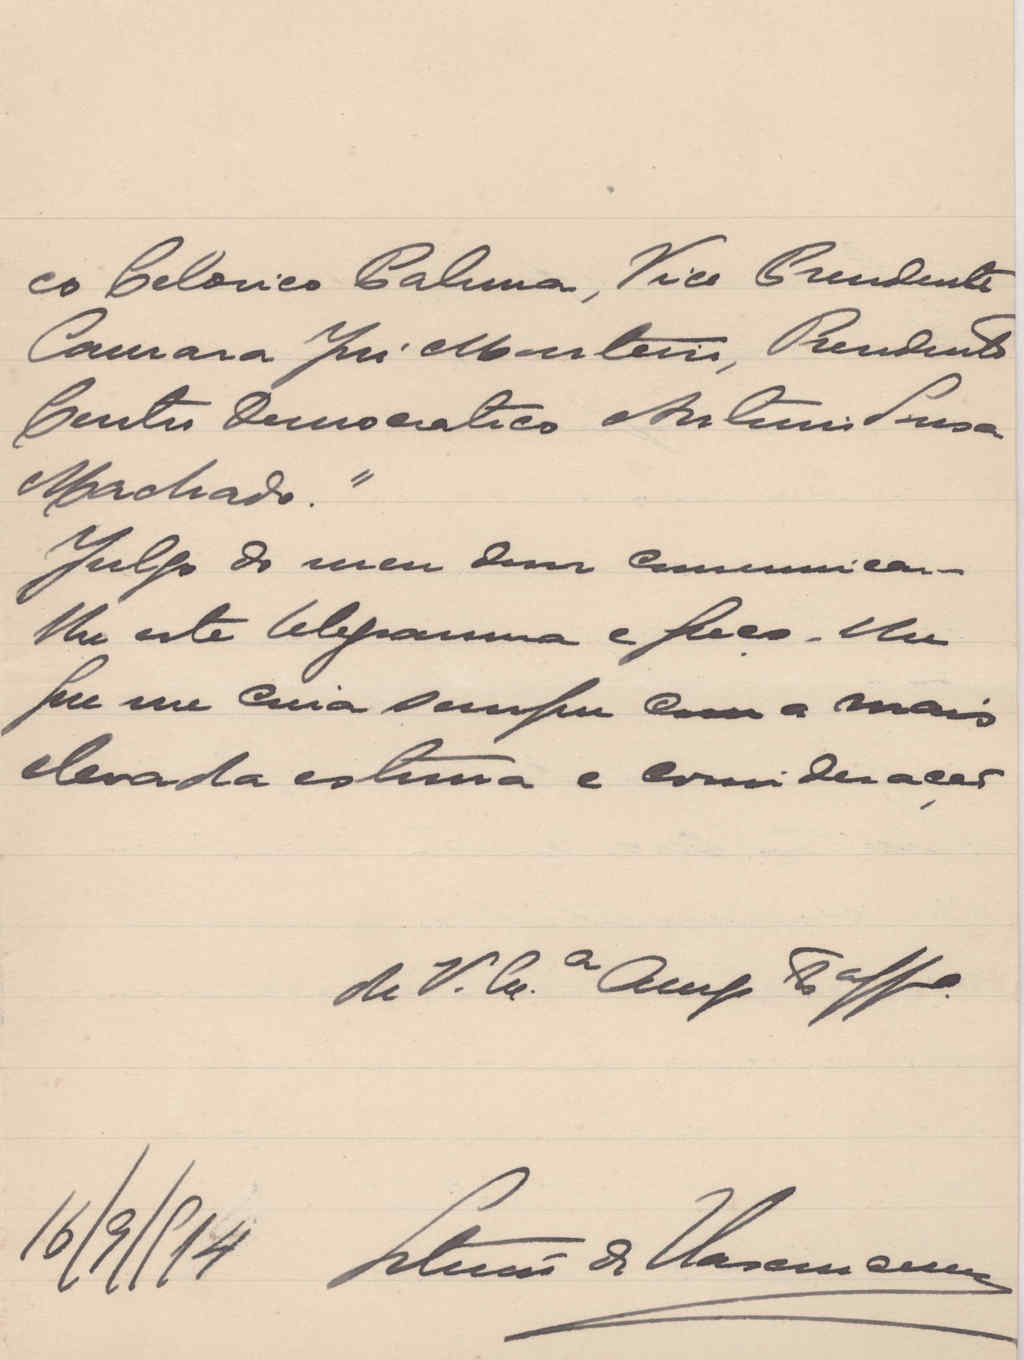 co Celorico Palma, Vice Presidente
Camara José Monteiro, Presidente
Centro Democratico Antonio Sousa
Machado."
Julgo do meu dever comunicar-
lhe este telegramma e peço-lhe
que me creia sempre com a mais
elevada estima e consideração
de V. Ex.ª Amgo
16/9/914 de Vasconcellos